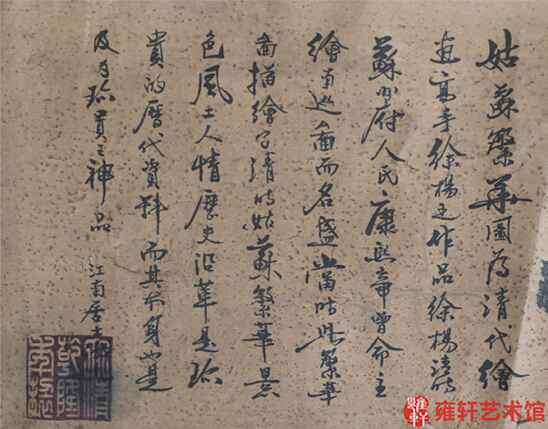 姑蘇繁華圖为清代繪
画高手徐楊之作品徐楊清时
蘇州府人民康熙帝曾命主
繪南巡圖而名盛當时此繁華
畵描繪了清时姑蘇繁華景
色風土人情歷史沿革是珍
貴的歷代資料而其本身也是
及为珍貴之神品 江南居士
乾隆
雍轩艺术馆